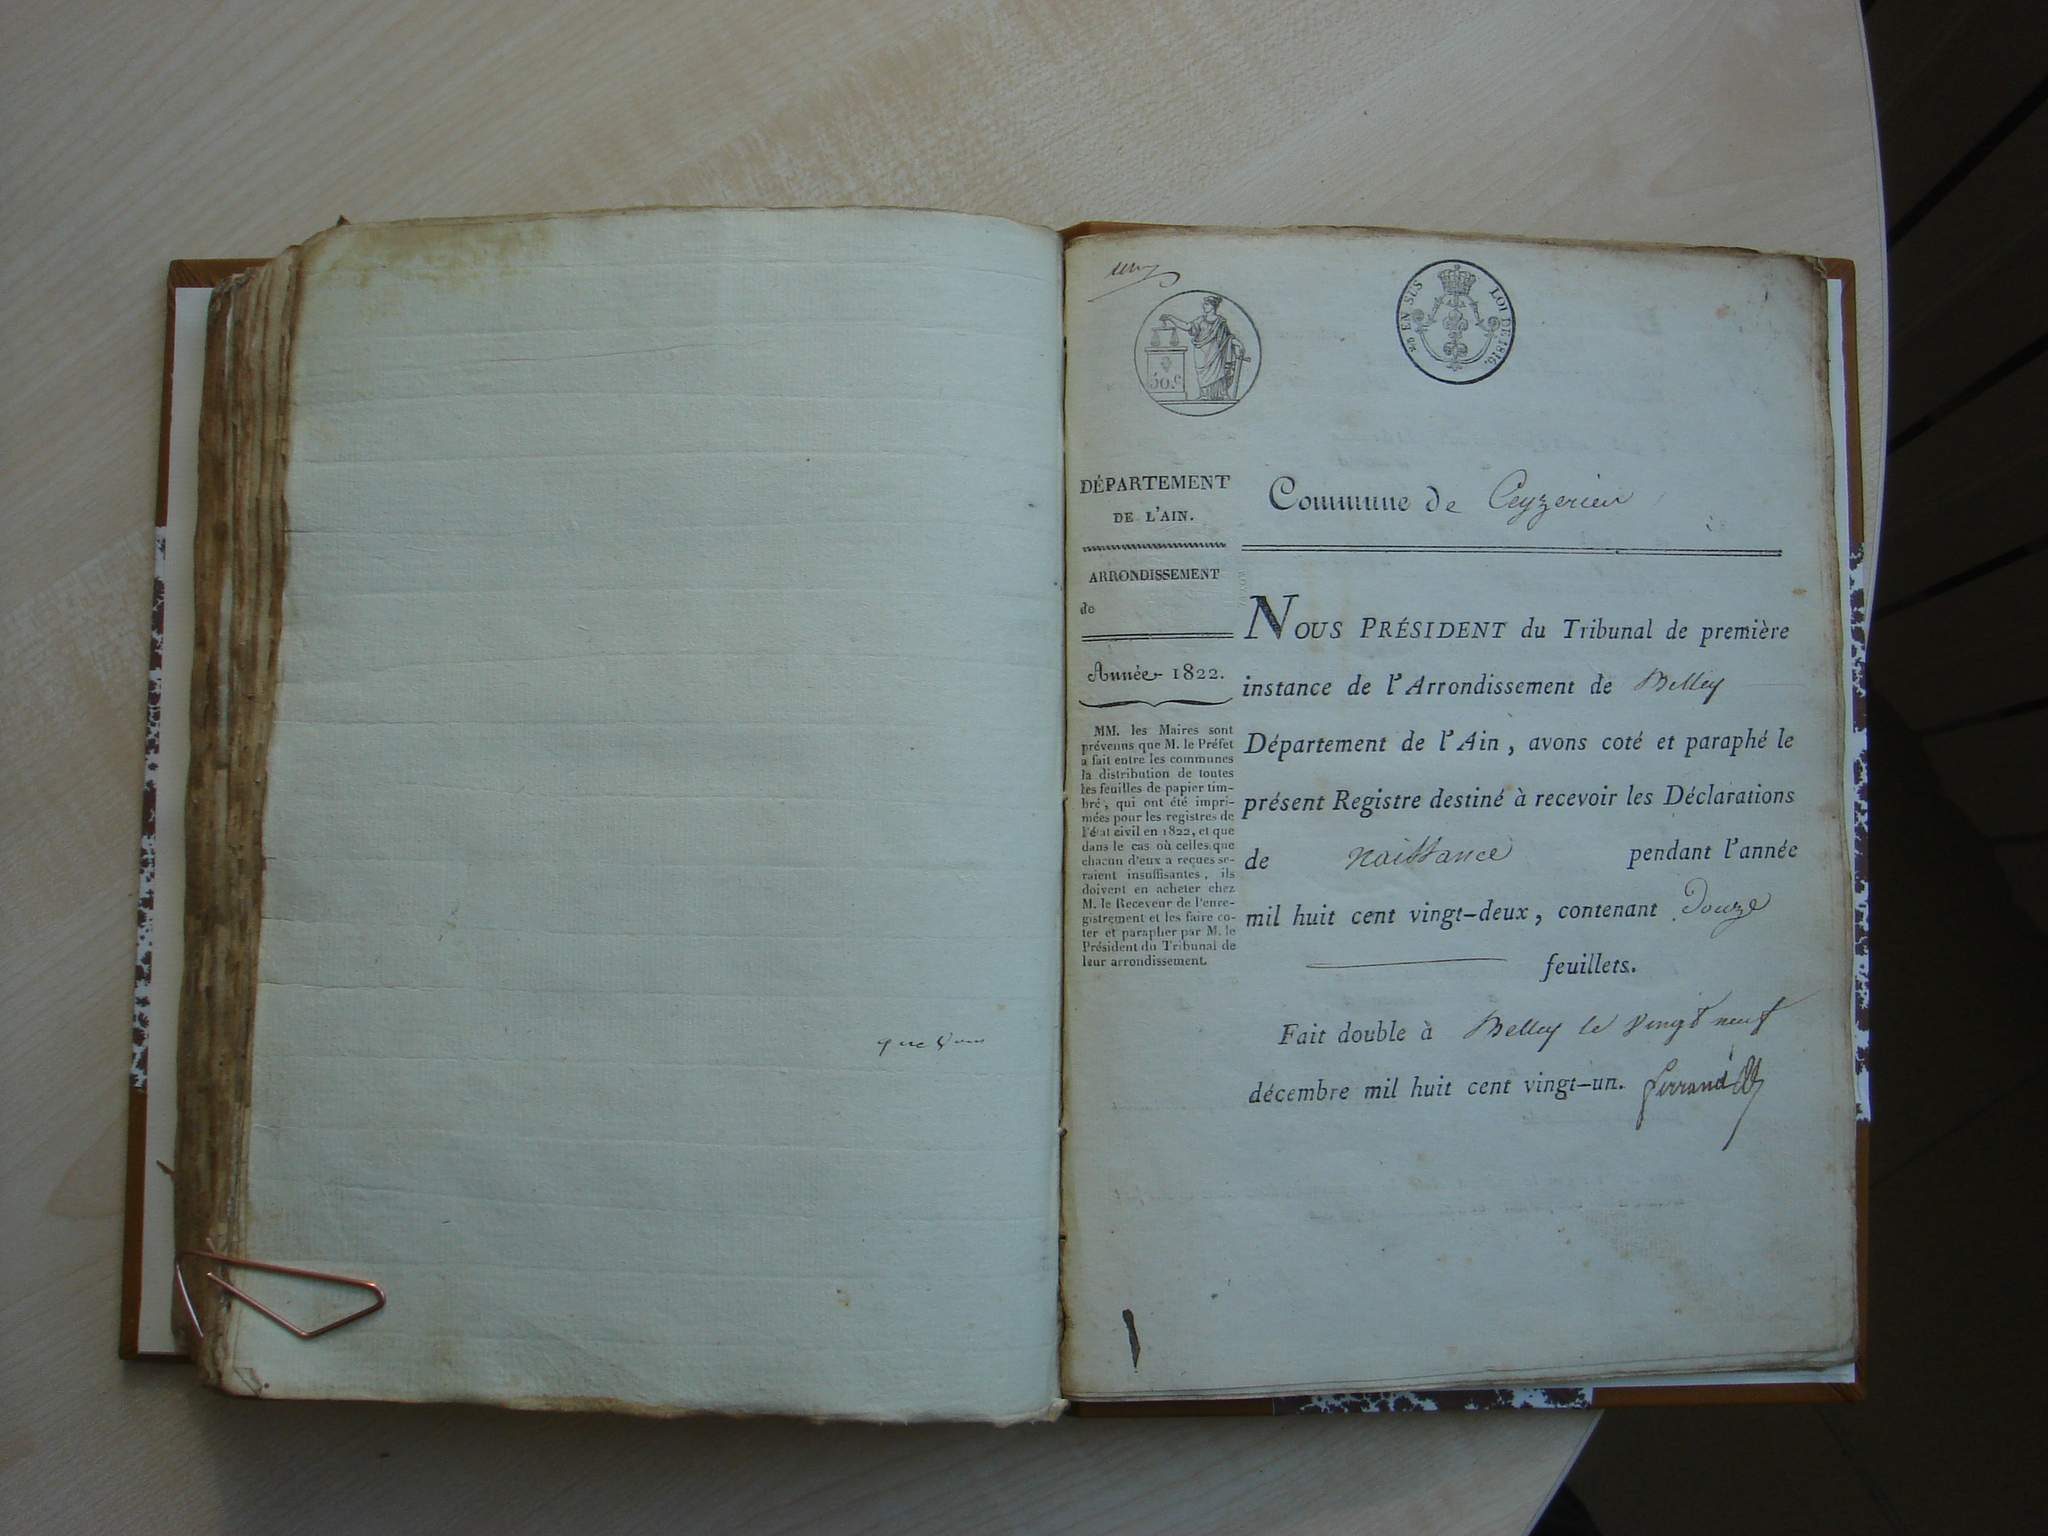 EN SUS LOI DE 1816.
50 C
DÉPARTEMENT
DE L'AIN.
ARRONDISSEMENT
de
Année 1822.
MM. les Maires sont
prévenus que M. le Préfet
a fait entre les communes
la distribution de toutes
les feuilles de papier tim-
bré, qui ont été impri-
mées pour les registres de
l'état civil en 1822, et que
dans le cas où celles que
chacun d'eux a reçues se-
raient insuffisantes, ils
doivent en acheter chez
M. le Receveur de l'enre-
gistrement et les faire co-
ter et parapher par M. le
Président du Tribunal de
leur arrondissement.
Commune de Ceyzerieu
NOUS PRÉSIDENT du Tribunal de première
instance de l'Arrondissement de Belley
Département de l'Ain, avons coté et paraphé le
présent Registre destiné à recevoir les Déclarations
de naissance pendant l'année
mil huit cent vingt-deux, contenant Douze
feuillets.
Fait double à Belley le vingt neuf
décembre mil huit cent vingt-un.